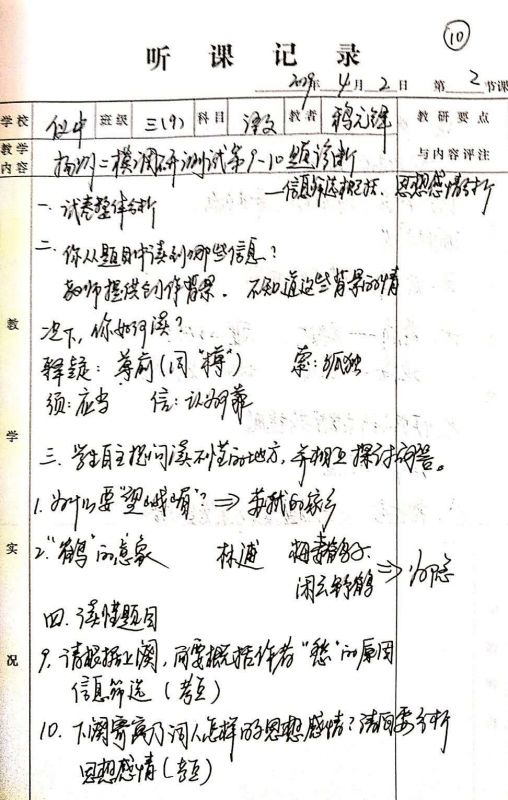 ⑩
听课记录
2019年 4月 2日 第 2 节课
学校 仪中 班级 三(9) 科目 语文 教者 教研要点
教学内容 扬州二模调研测试第9-10题诊断 与内容评注
—信息筛选概括、思想感情分析
一、试卷整体分析
二、你从题目中读到哪些信息?
教师提供创作背景. 不知道这些背景的情
况下,你如何读?
释疑:尊前(同"樽") 索:孤独
须:应当 信:认为可靠
三、学生自主提问读不懂的地方,并相互探讨解答。
1.为什么要"望峨嵋"?⇒苏轼的家乡
2."鹤"的意象 林逋 梅妻鹤子
闲云野鹤 ⇒ 归隐
四、读懂题目
9.请根据上阕,简要概括作者"愁"的原因
信息筛选(考点)
10.下阕寄寓了词人怎样的思想感情?请简要分析
思想感情(考点)
教学实况